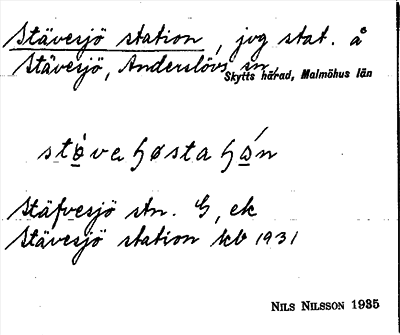 Stävesjö station, jvg stat. å
Stävesjö, Anderslövs sn,
Skytts härad, Malmöhus län
Stäfvesjö stn. G, ek
Stävesjö station kb 1931
NILS NILSSON 1935